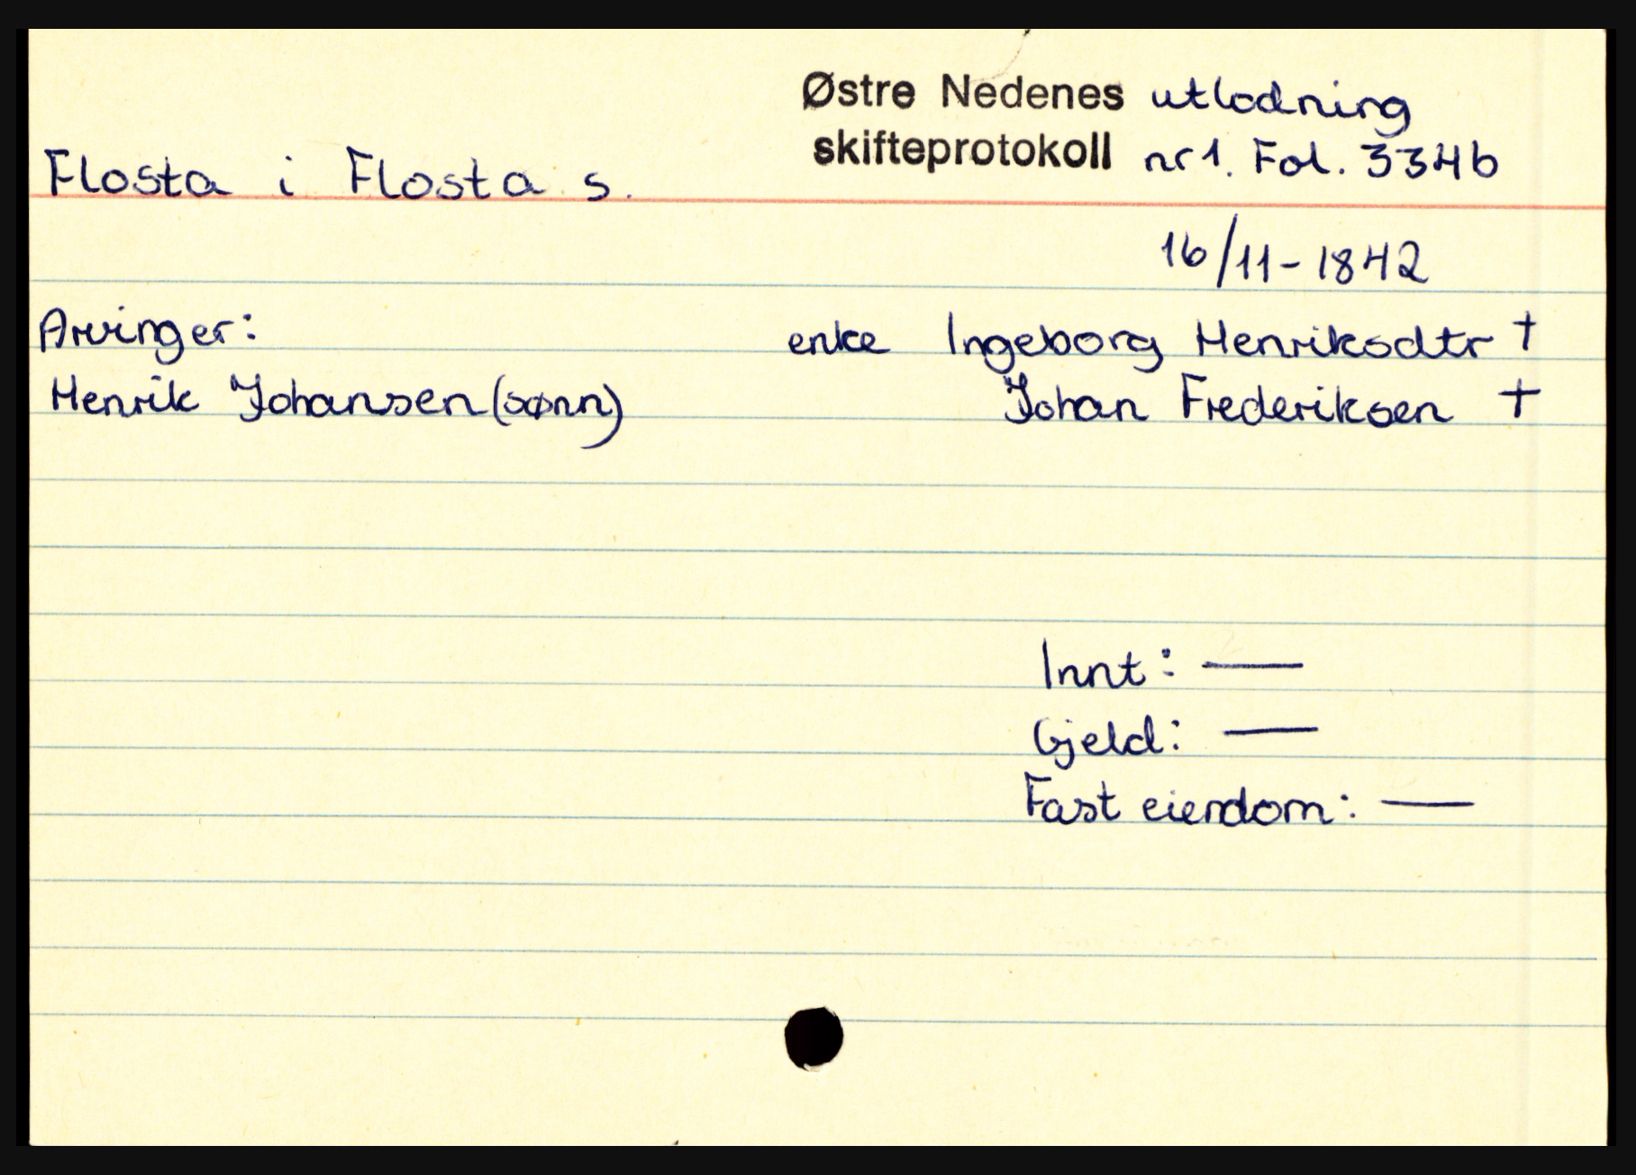 Østre Nedenes utlodning
skifteprotokoll nr 1. Fol. 334b
Flosta i Flosta s.
16/11-1842
Arvinger: enke Ingeborg Henriksdtr †
Henrik Johansen (sønn) Johan Frederiksen †
Innt: —
Gjeld: —
Fast eiendom: —